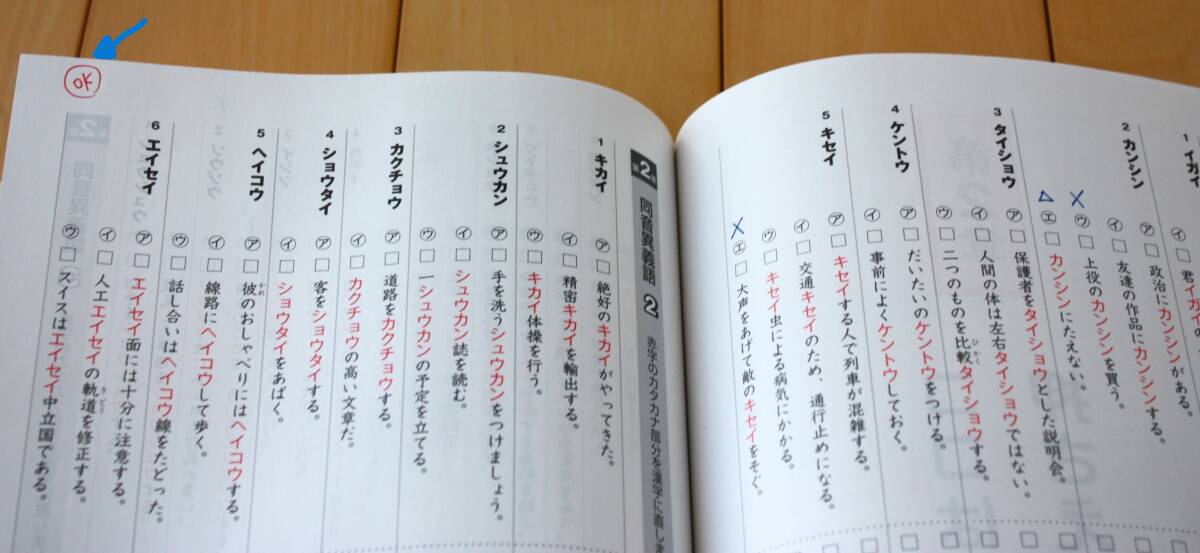 君
1 イガイ
2 カンシン
ア □ 政治にカンシンがある。
イ □ 友達の作品にカンシンする。
ウ □ 上役のカンシンを買う。
×
エ □ カンシンにたえない。
△
3 タイショウ
ア □ 保護者をタイショウとした説明会。
イ □ 人間の体は左右タイショウではない。
ウ □ 二つのものを比較タイショウする。
ひかく
4 ケントウ
ア □ だいたいのケントウをつける。
イ □ 事前によくケントウしておく。
5 キセイ
ア □ キセイする人で列車が混雑する。
イ □ 交通キセイのため、通行止めになる。
ウ □ キセイ虫による病気にかかる。
エ □ 大声をあげて敵のキセイをそぐ。
×
第2章 同音異義語 2 赤字のカタカナ部分を漢字に直しま
1 キカイ
ア □ 絶好のキカイがやってきた。
イ □ 精密キカイを輸出する。
ウ □ キカイ体操を行う。
2 シュウカン
ア □ 手を洗うシュウカンをつけましょう。
イ □ シュウカン誌を読む。
ウ □ 一シュウカンの予定を立てる。
3 カクチョウ
ア □ 道路をカクチョウする。
イ □ カクチョウの高い文章だ。
4 ショウタイ
ア □ 客をショウタイする。
イ □ ショウタイをあばく。
5 ヘイコウ
ア □ 彼のおしゃべりにはヘイコウする。
かれ
イ □ 線路にヘイコウして歩く。
ウ □ 話し合いはヘイコウ線をたどった。
6 エイセイ
ア □ エイセイ面には十分に注意する。
イ □ 人工エイセイの軌道を修正する。
きどう
ウ □ スイスはエイセイ中立国である。
OK